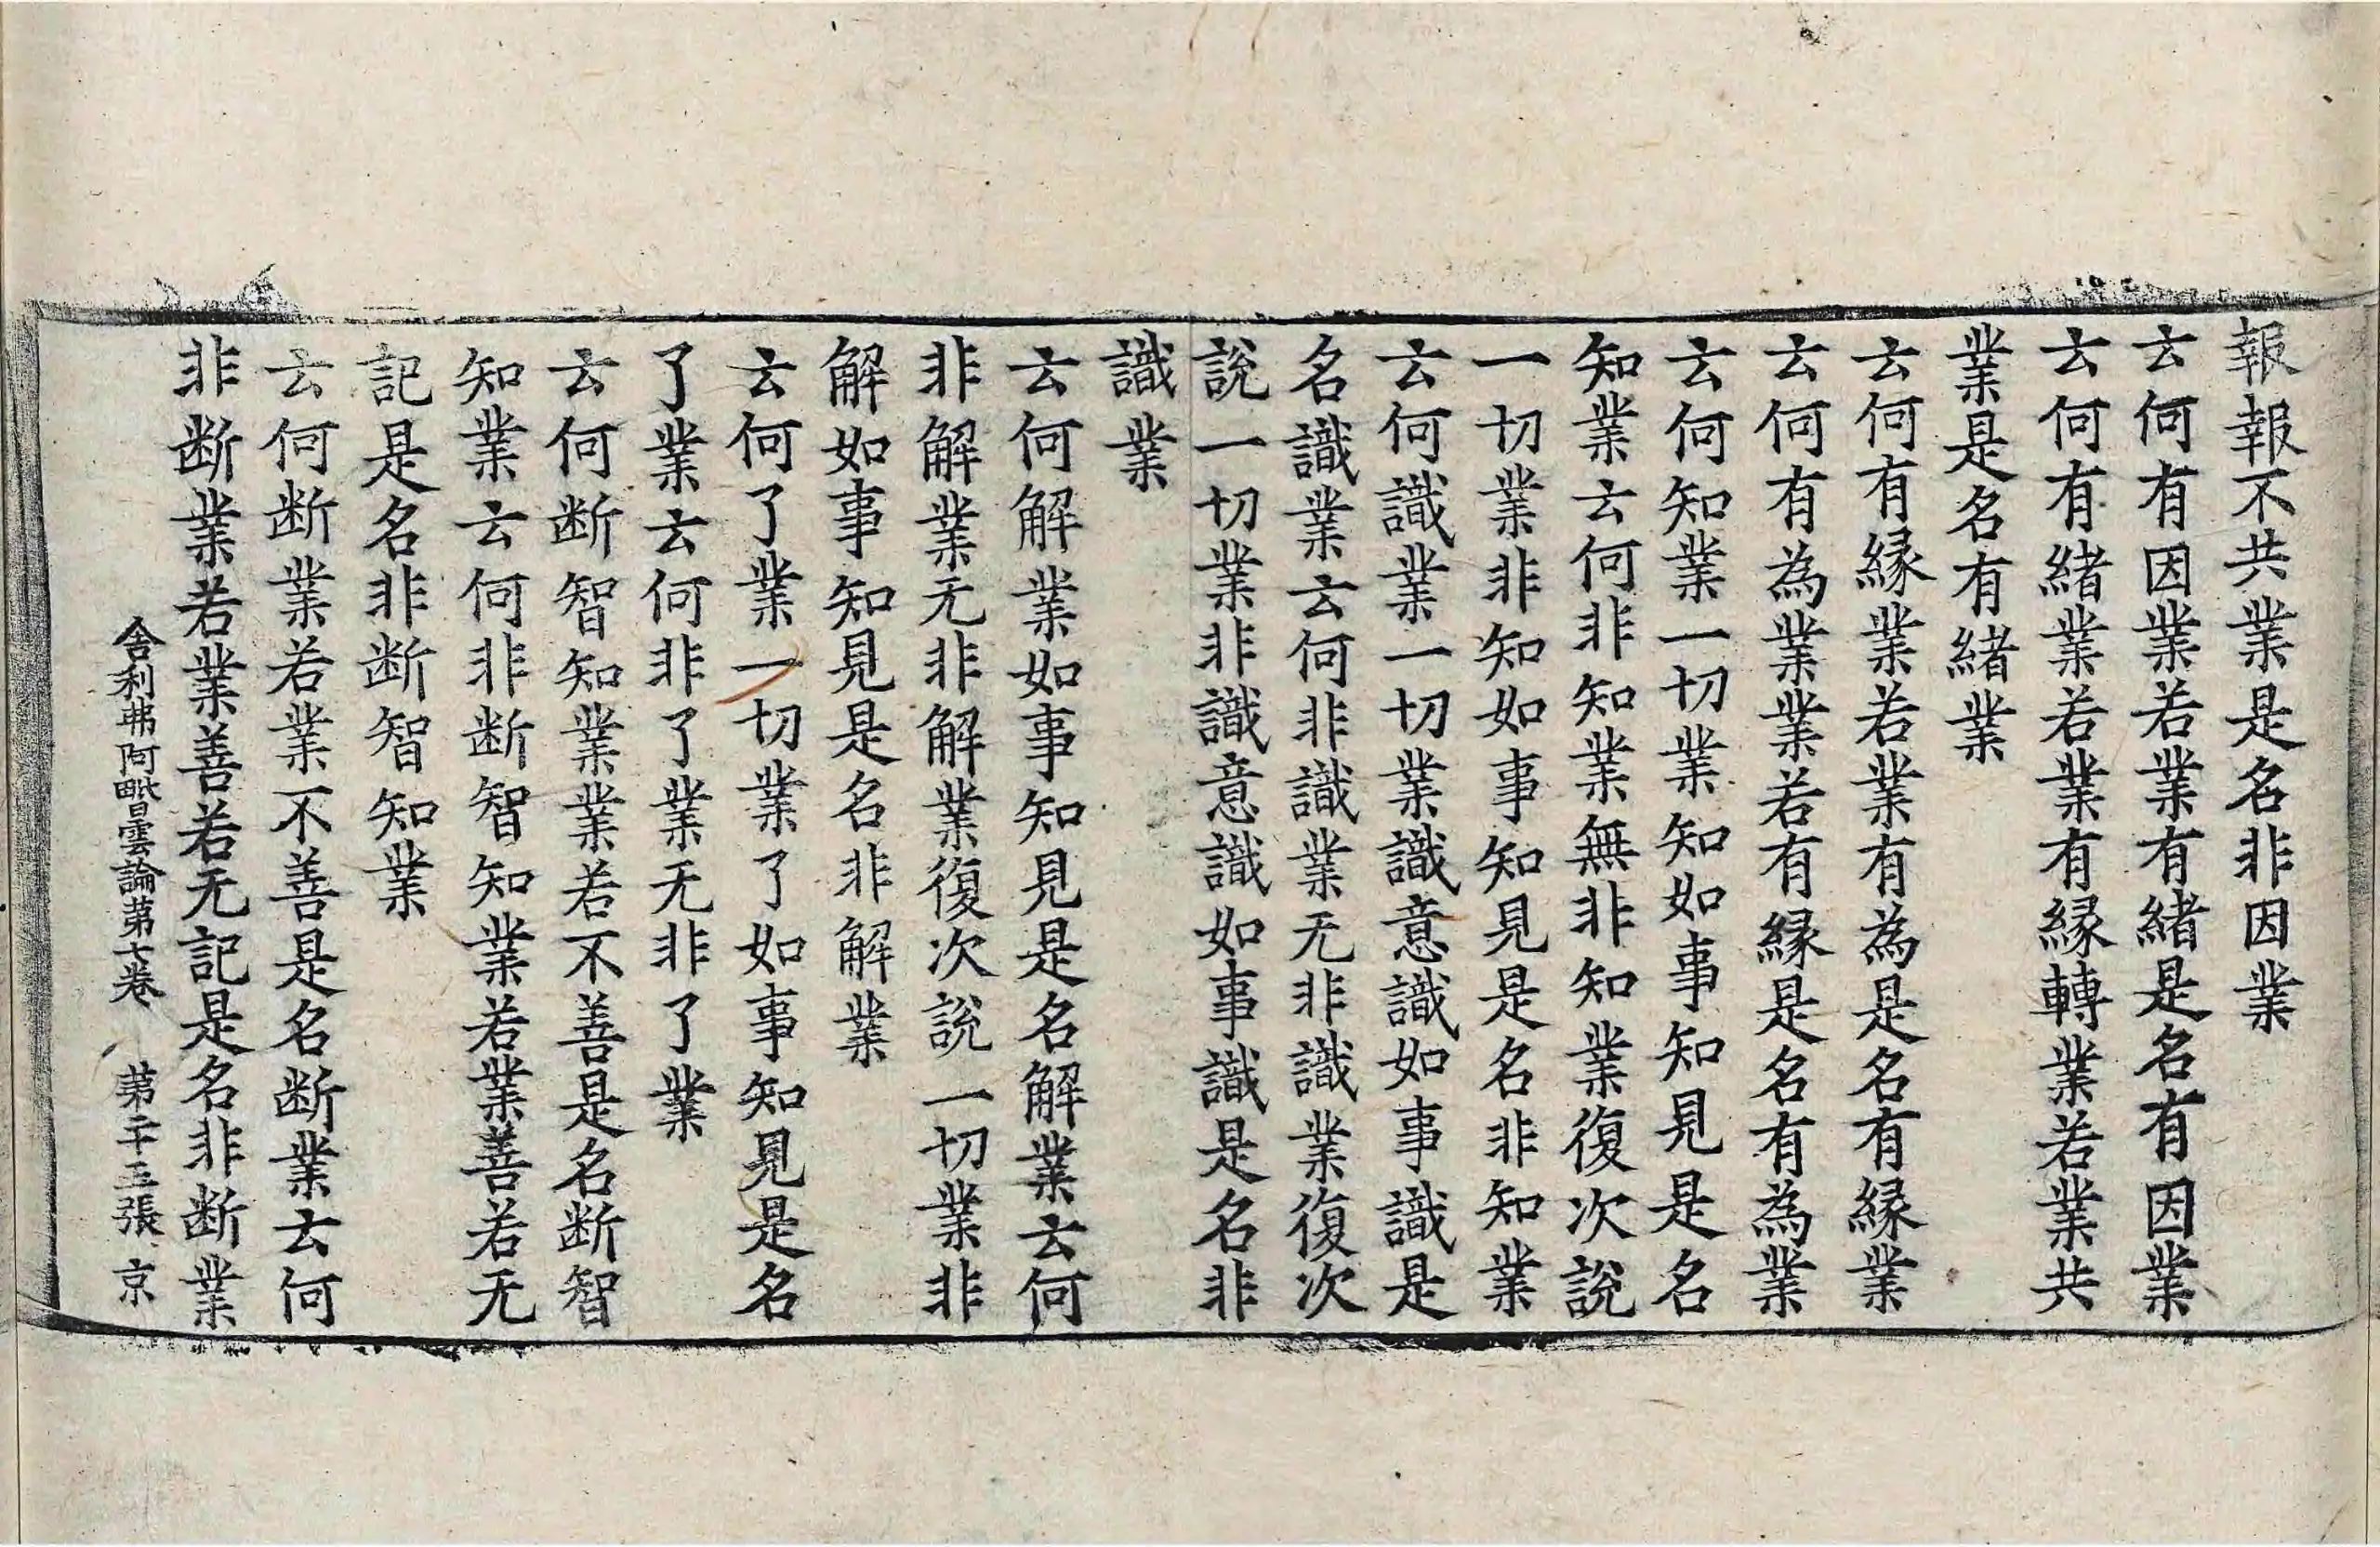 報報不共業是名非因業
云何有因業若業有緒是名有因業
云何有緒業若業有縁轉業若業共
業是名有緒業
云何有縁業若業有為是名有縁業
云何有為業業若有縁是名有為業
云何知業一切業知如事知見是名
知業云何非知業無非知業復次說
一切業非知如事知見是名非知業
云何識業一切業識意識如事識是
名識業云何非識業无非識業復次
說一切業非識意識如事識是名非
識業
云何解業如事知見是名解業云何
非解業无非解業復次說一切業非
解如事知見是名非解業
云何了業一切業了如事知見是名
了業云何非了業无非了業
云何断智知業業若不善是名断智
知業云何非断智知業若業善若无
記是名非断智知業
云何断業若業不善是名断業云何
非断業若業善若无記是名非断業
舍利弗阿毗曇論第七卷 第二十五張 京